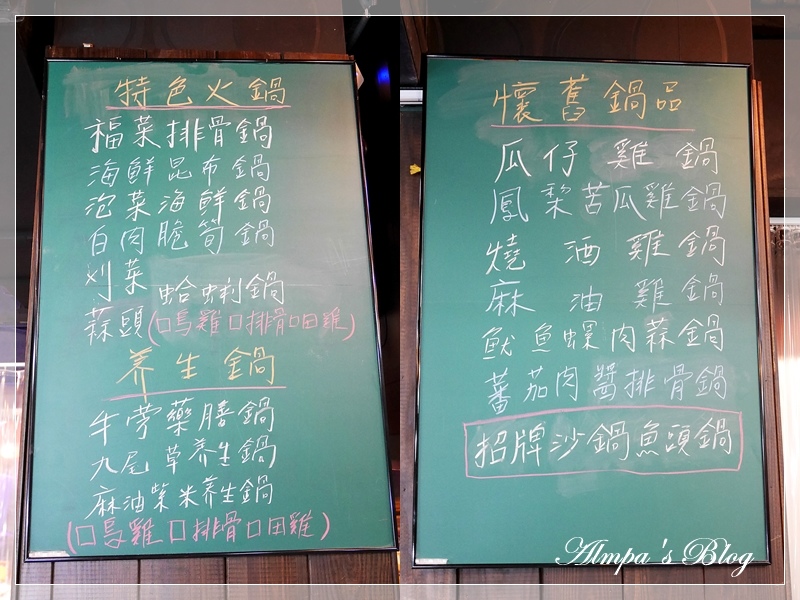 特色火鍋
福菜排骨鍋
海鮮昆布鍋
泡菜海鮮鍋
白肉脆筍鍋
刈菜
蒜頭 蛤蜊鍋
(□烏雞□排骨□田雞)
养生鍋
牛蒡藥膳鍋
九尾草养生鍋
麻油紫米养生鍋
(□烏雞□排骨□田雞)
懷舊鍋品
瓜仔雞鍋
鳳梨苦瓜雞鍋
燒酒雞鍋
麻油雞鍋
魷魚螺肉蒜鍋
蕃茄肉醬排骨鍋
招牌沙鍋魚頭鍋
Almpa's Blog